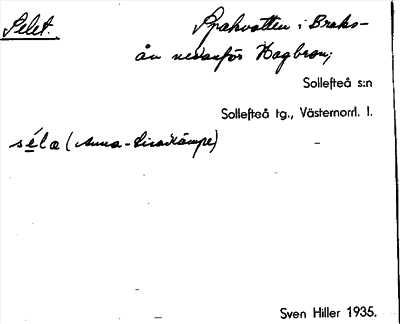 Selet.
Spakvatten i Braks-
ån nedanför Hagbron;
Sollefteå s:n
Sollefteå tg., Västernorrl. l.
séla (Anna-Lisa Kämpe)
Sven Hiller 1935.